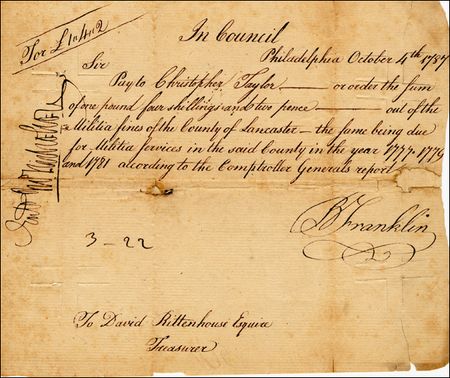 For £1..4..2
In Council
Philadelphia October 4th 1787
Sir
Pay to Christopher Taylor — or order the sum
of one pound four shillings and two pence — out of the
Militia fines of the County of Lancaster — the same being due
for Militia services in the said County in the year 1777. 1779
and 1781 according to the Comptroller General's report
B Franklin
3 - 22
To David Rittenhouse Esquire
Treasurer